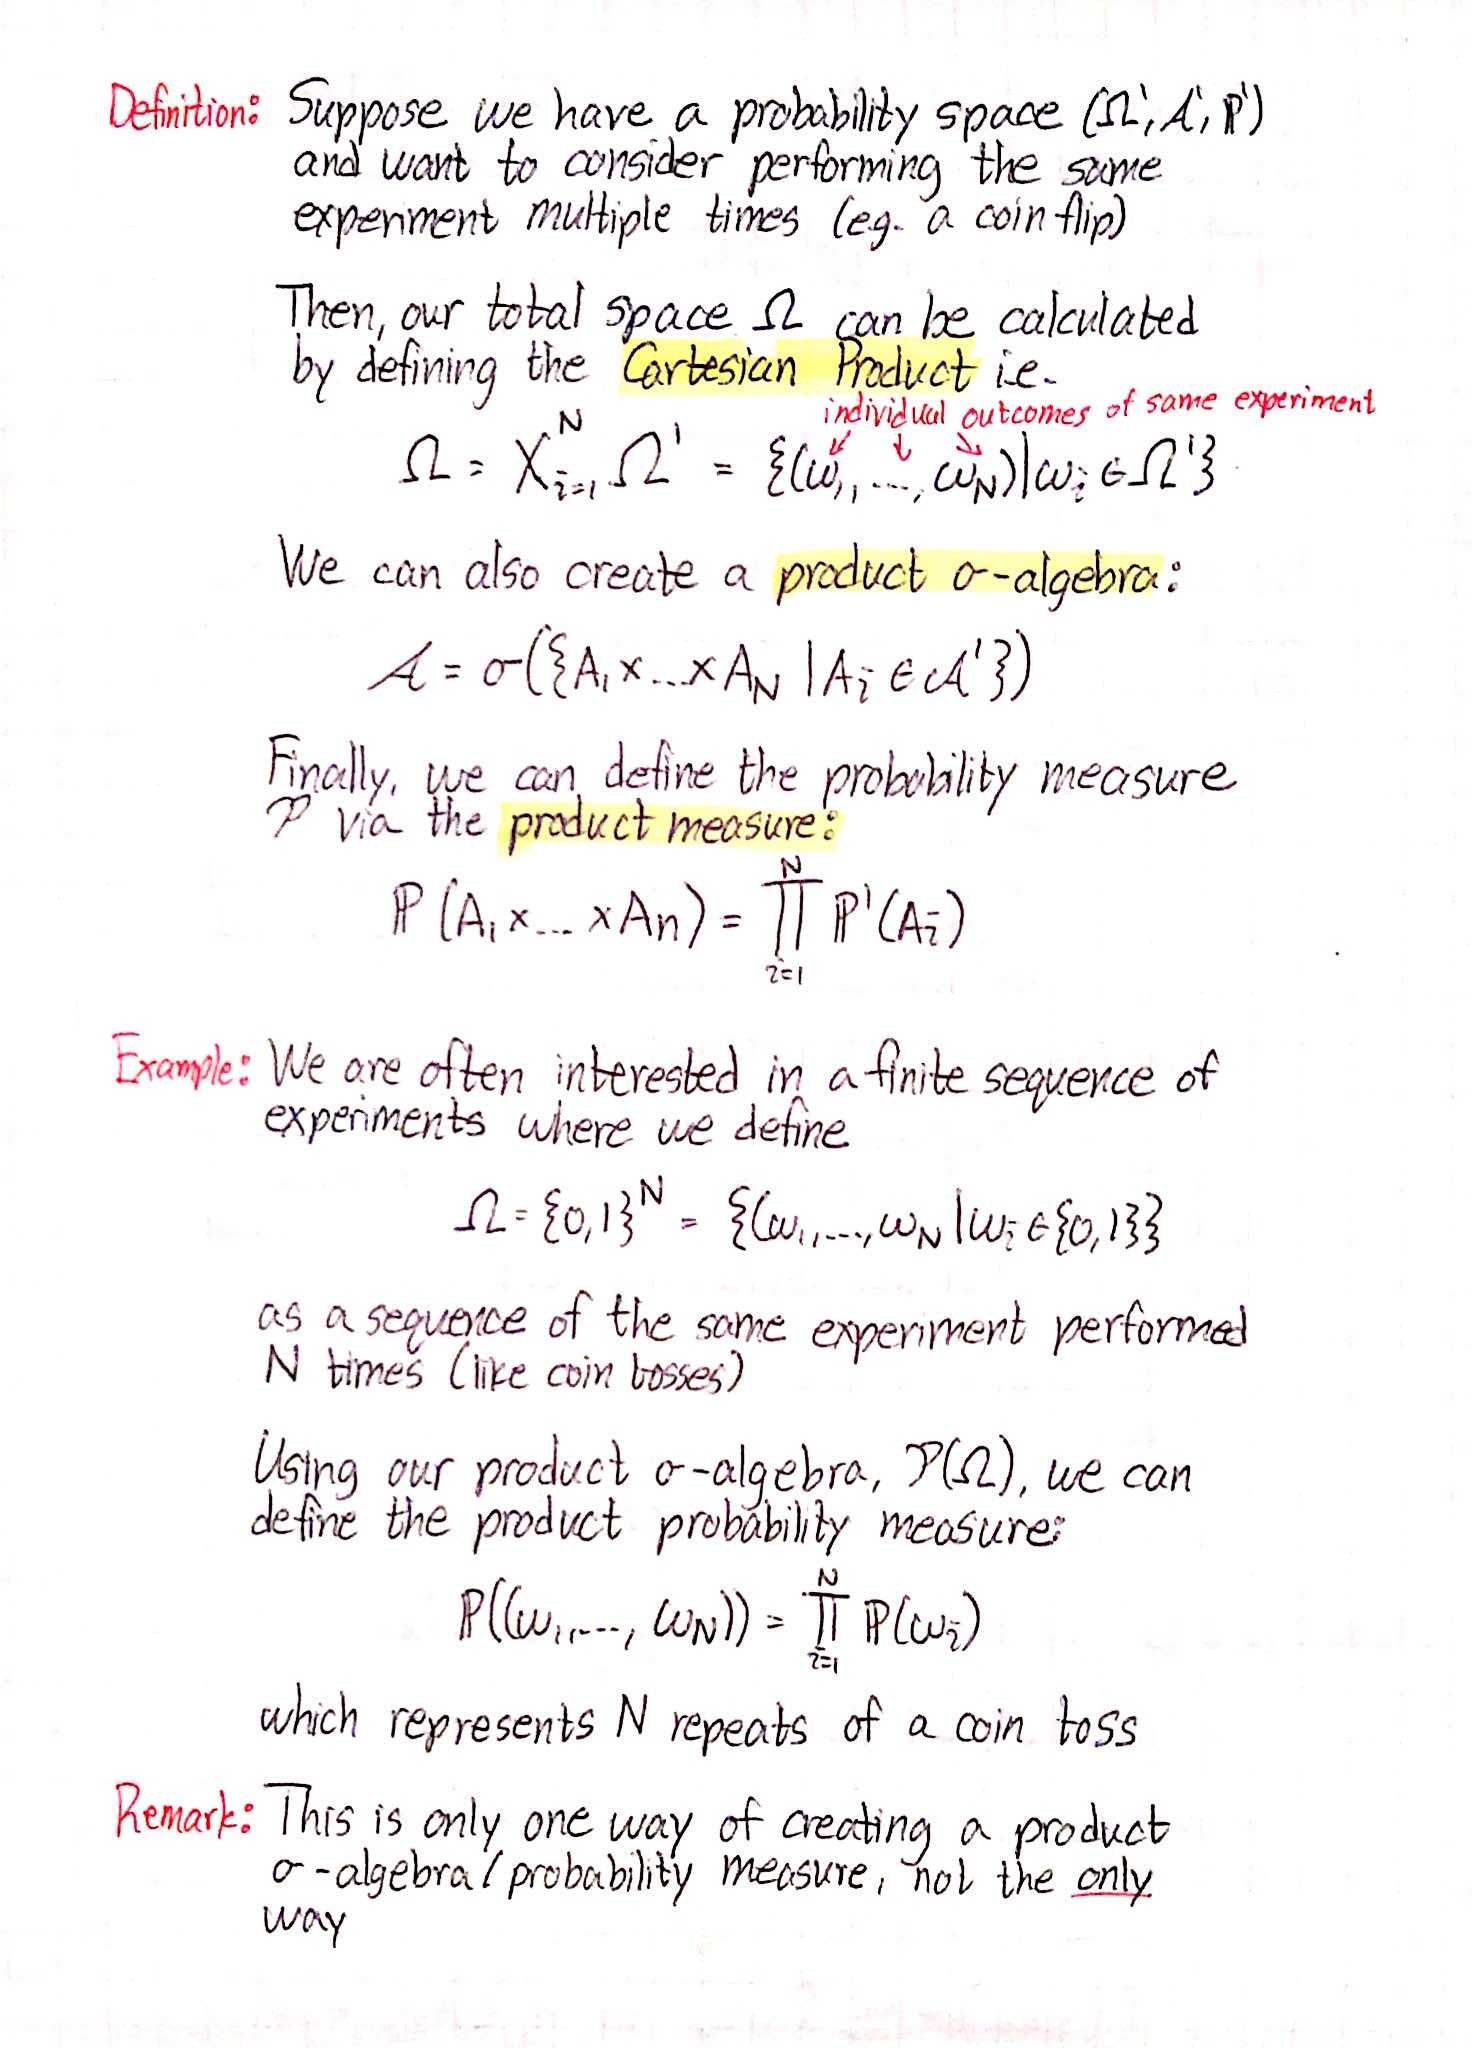 Definition: Suppose we have a probability space (Ω', 𝒜', ℙ')
and want to consider performing the same
experiment multiple times (eg. a coin flip)
Then, our total space Ω can be calculated
by defining the Cartesian Product i.e.
individual outcomes of same experiment
Ω = X_{i=1}^N Ω' = {(ω₁, ..., ω_N) | ω_i ∈ Ω'}
We can also create a product σ-algebra:
𝒜 = σ({A₁ × ... × A_N | A_i ∈ 𝒜'})
Finally, we can define the probability measure
𝒫 via the product measure:
ℙ(A₁ × ... × A_n) = ∏_{i=1}^N ℙ'(A_i)
Example: We are often interested in a finite sequence of
experiments where we define
Ω = {0,1}^N = {(ω₁, ..., ω_N | ω_i ∈ {0,1}}
as a sequence of the same experiment performed
N times (like coin tosses)
Using our product σ-algebra, 𝒫(Ω), we can
define the product probability measure:
ℙ((ω₁, ..., ω_N)) = ∏_{i=1}^N ℙ(ω_i)
which represents N repeats of a coin toss
Remark: This is only one way of creating a product
σ-algebra/probability measure, not the only
way